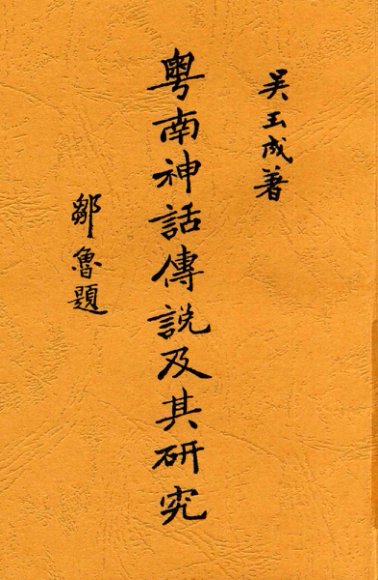 吴玉成著
粤南神話傳説及其研究
鄒魯題